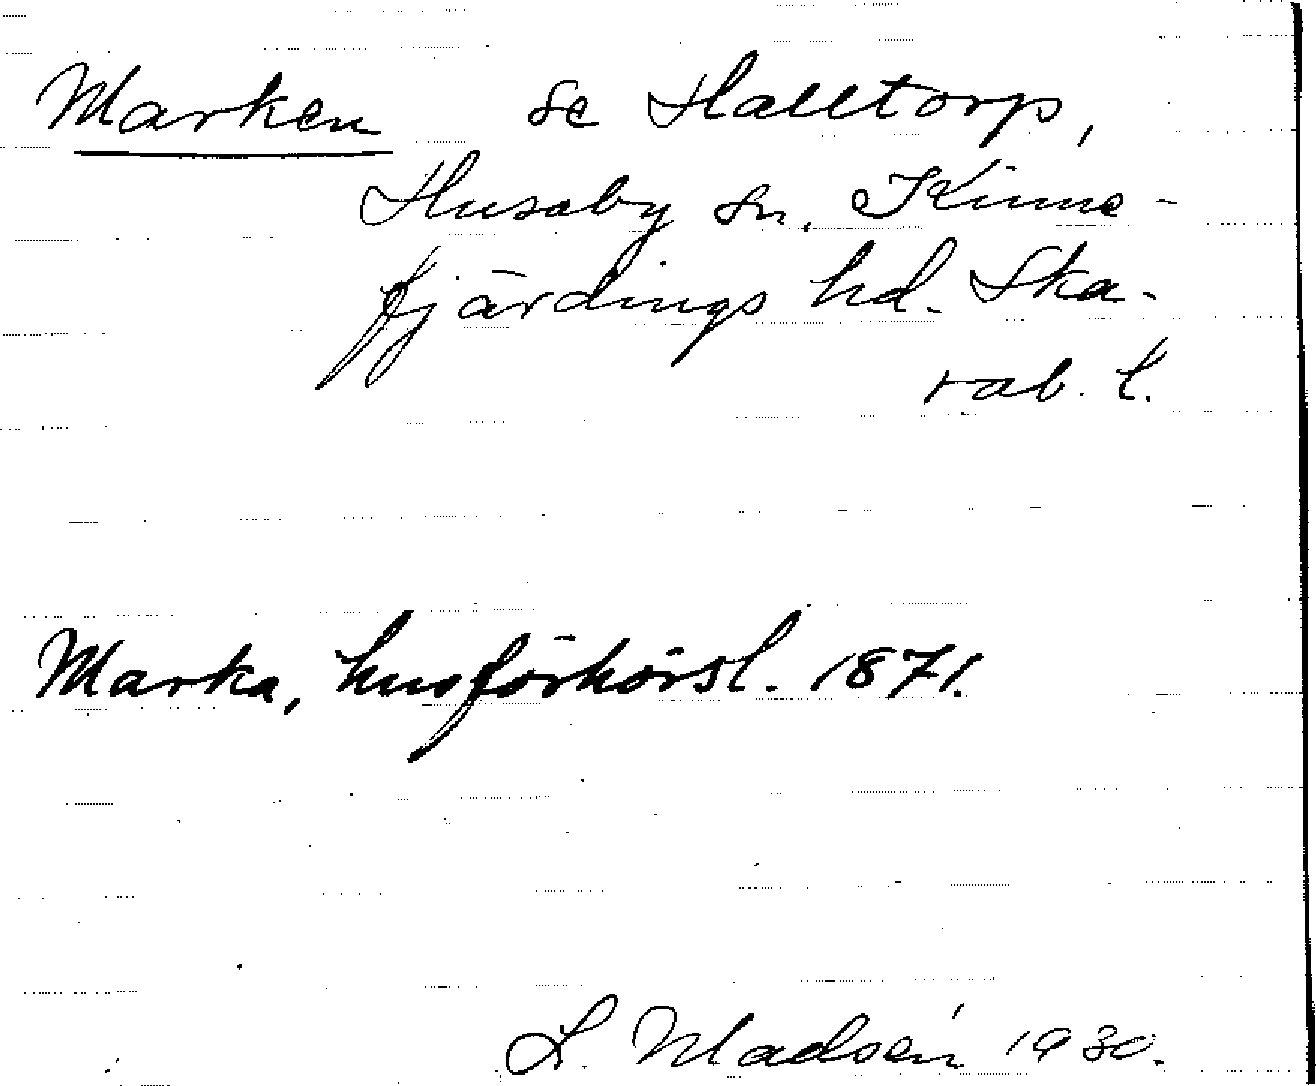 Marken se Halltorp,
Husaby sn, Kinne-
fjärdings hd. Ska-
rab. l.
Marka, husförhörsl. 1871.
L. Madsén 1930.